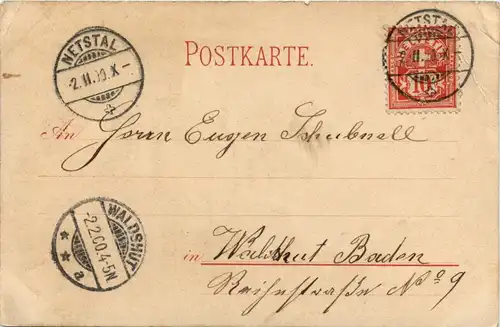 NETSTAL
2.II.00.X-
POSTKARTE.
NETSTAL
10
An Herrn Eugen Schubnell
WALDSHUT
2.2.00.4-5N
* * a
in Waldshut Baden
Rheinstraße No 9